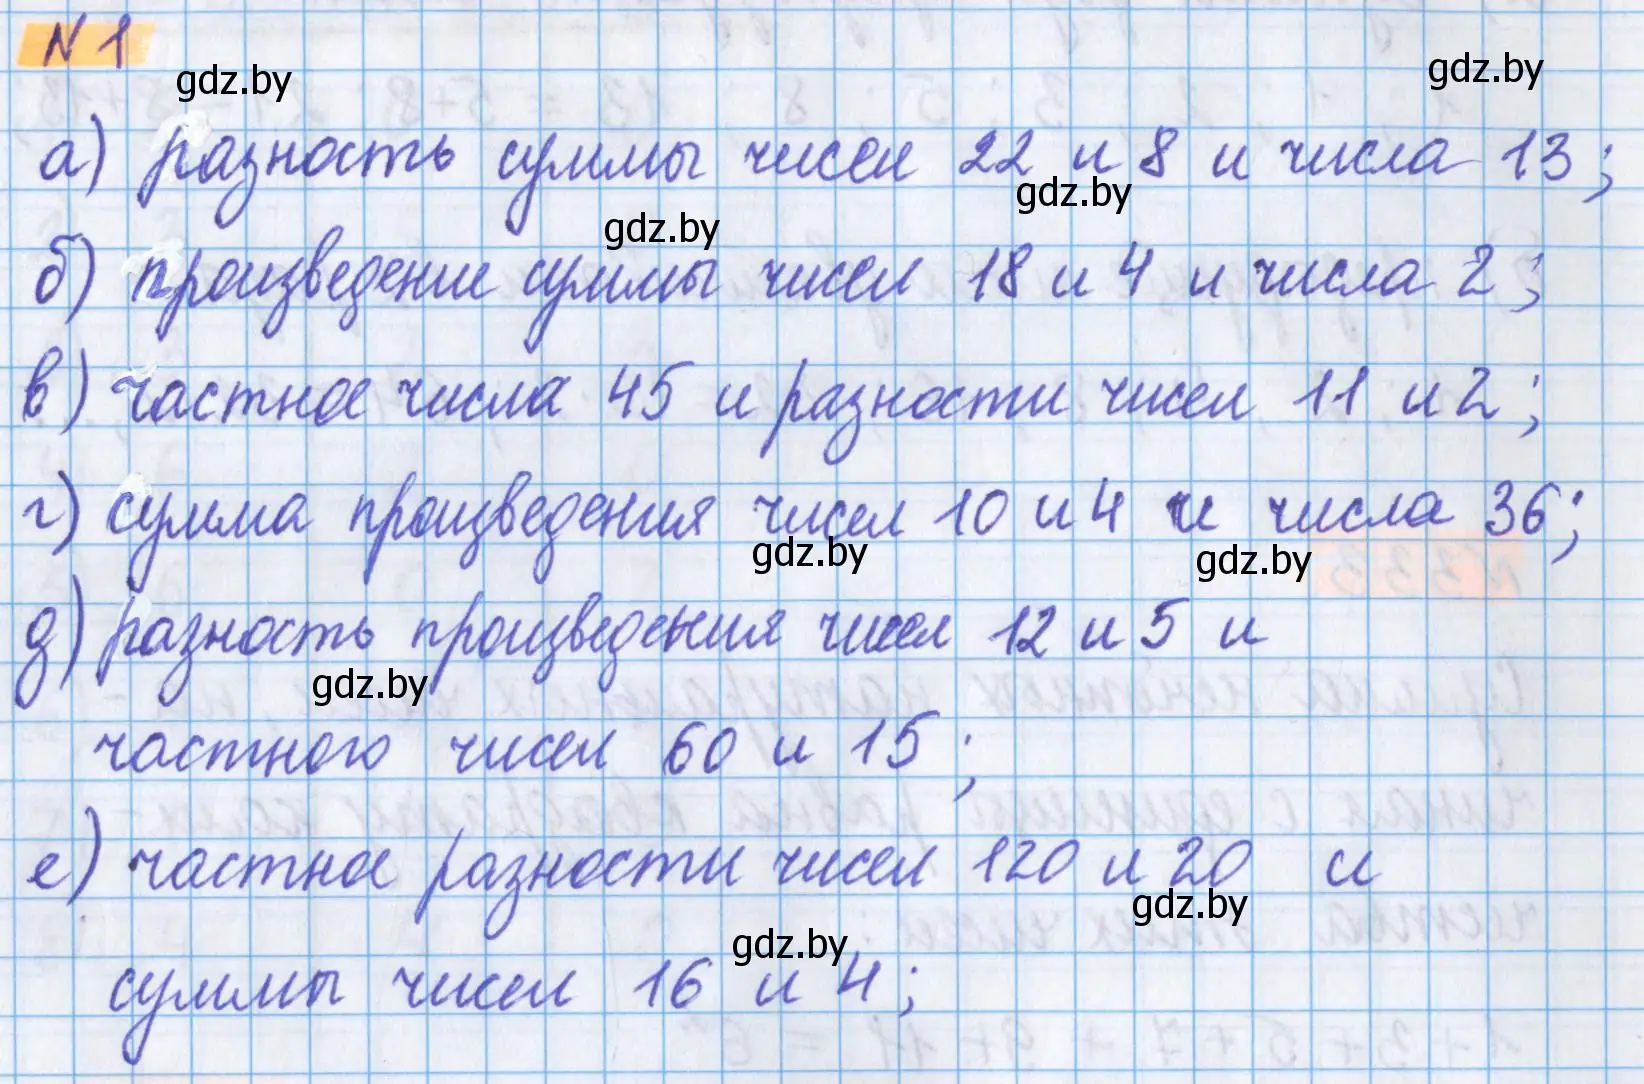 N 1
gdz.by gdz.by
а) разность суммы чисел 22 и 8 и числа 13;
gdz.by gdz.by
б) произведение суммы чисел 18 и 4 и числа 2;
в) частное числа 45 и разности чисел 11 и 2;
г) сумма произведения чисел 10 и 4 и числа 36;
gdz.by gdz.by
д) разность произведения чисел 12 и 5 и
gdz.by
частного чисел 60 и 15;
е) частное разности чисел 120 и 20 и
gdz.by gdz.by
суммы чисел 16 и 4;